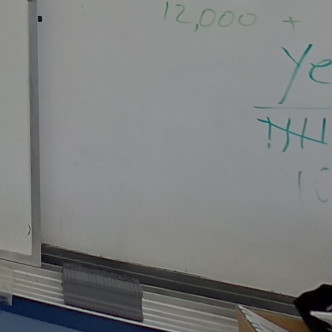 12,000 +
Ye
10